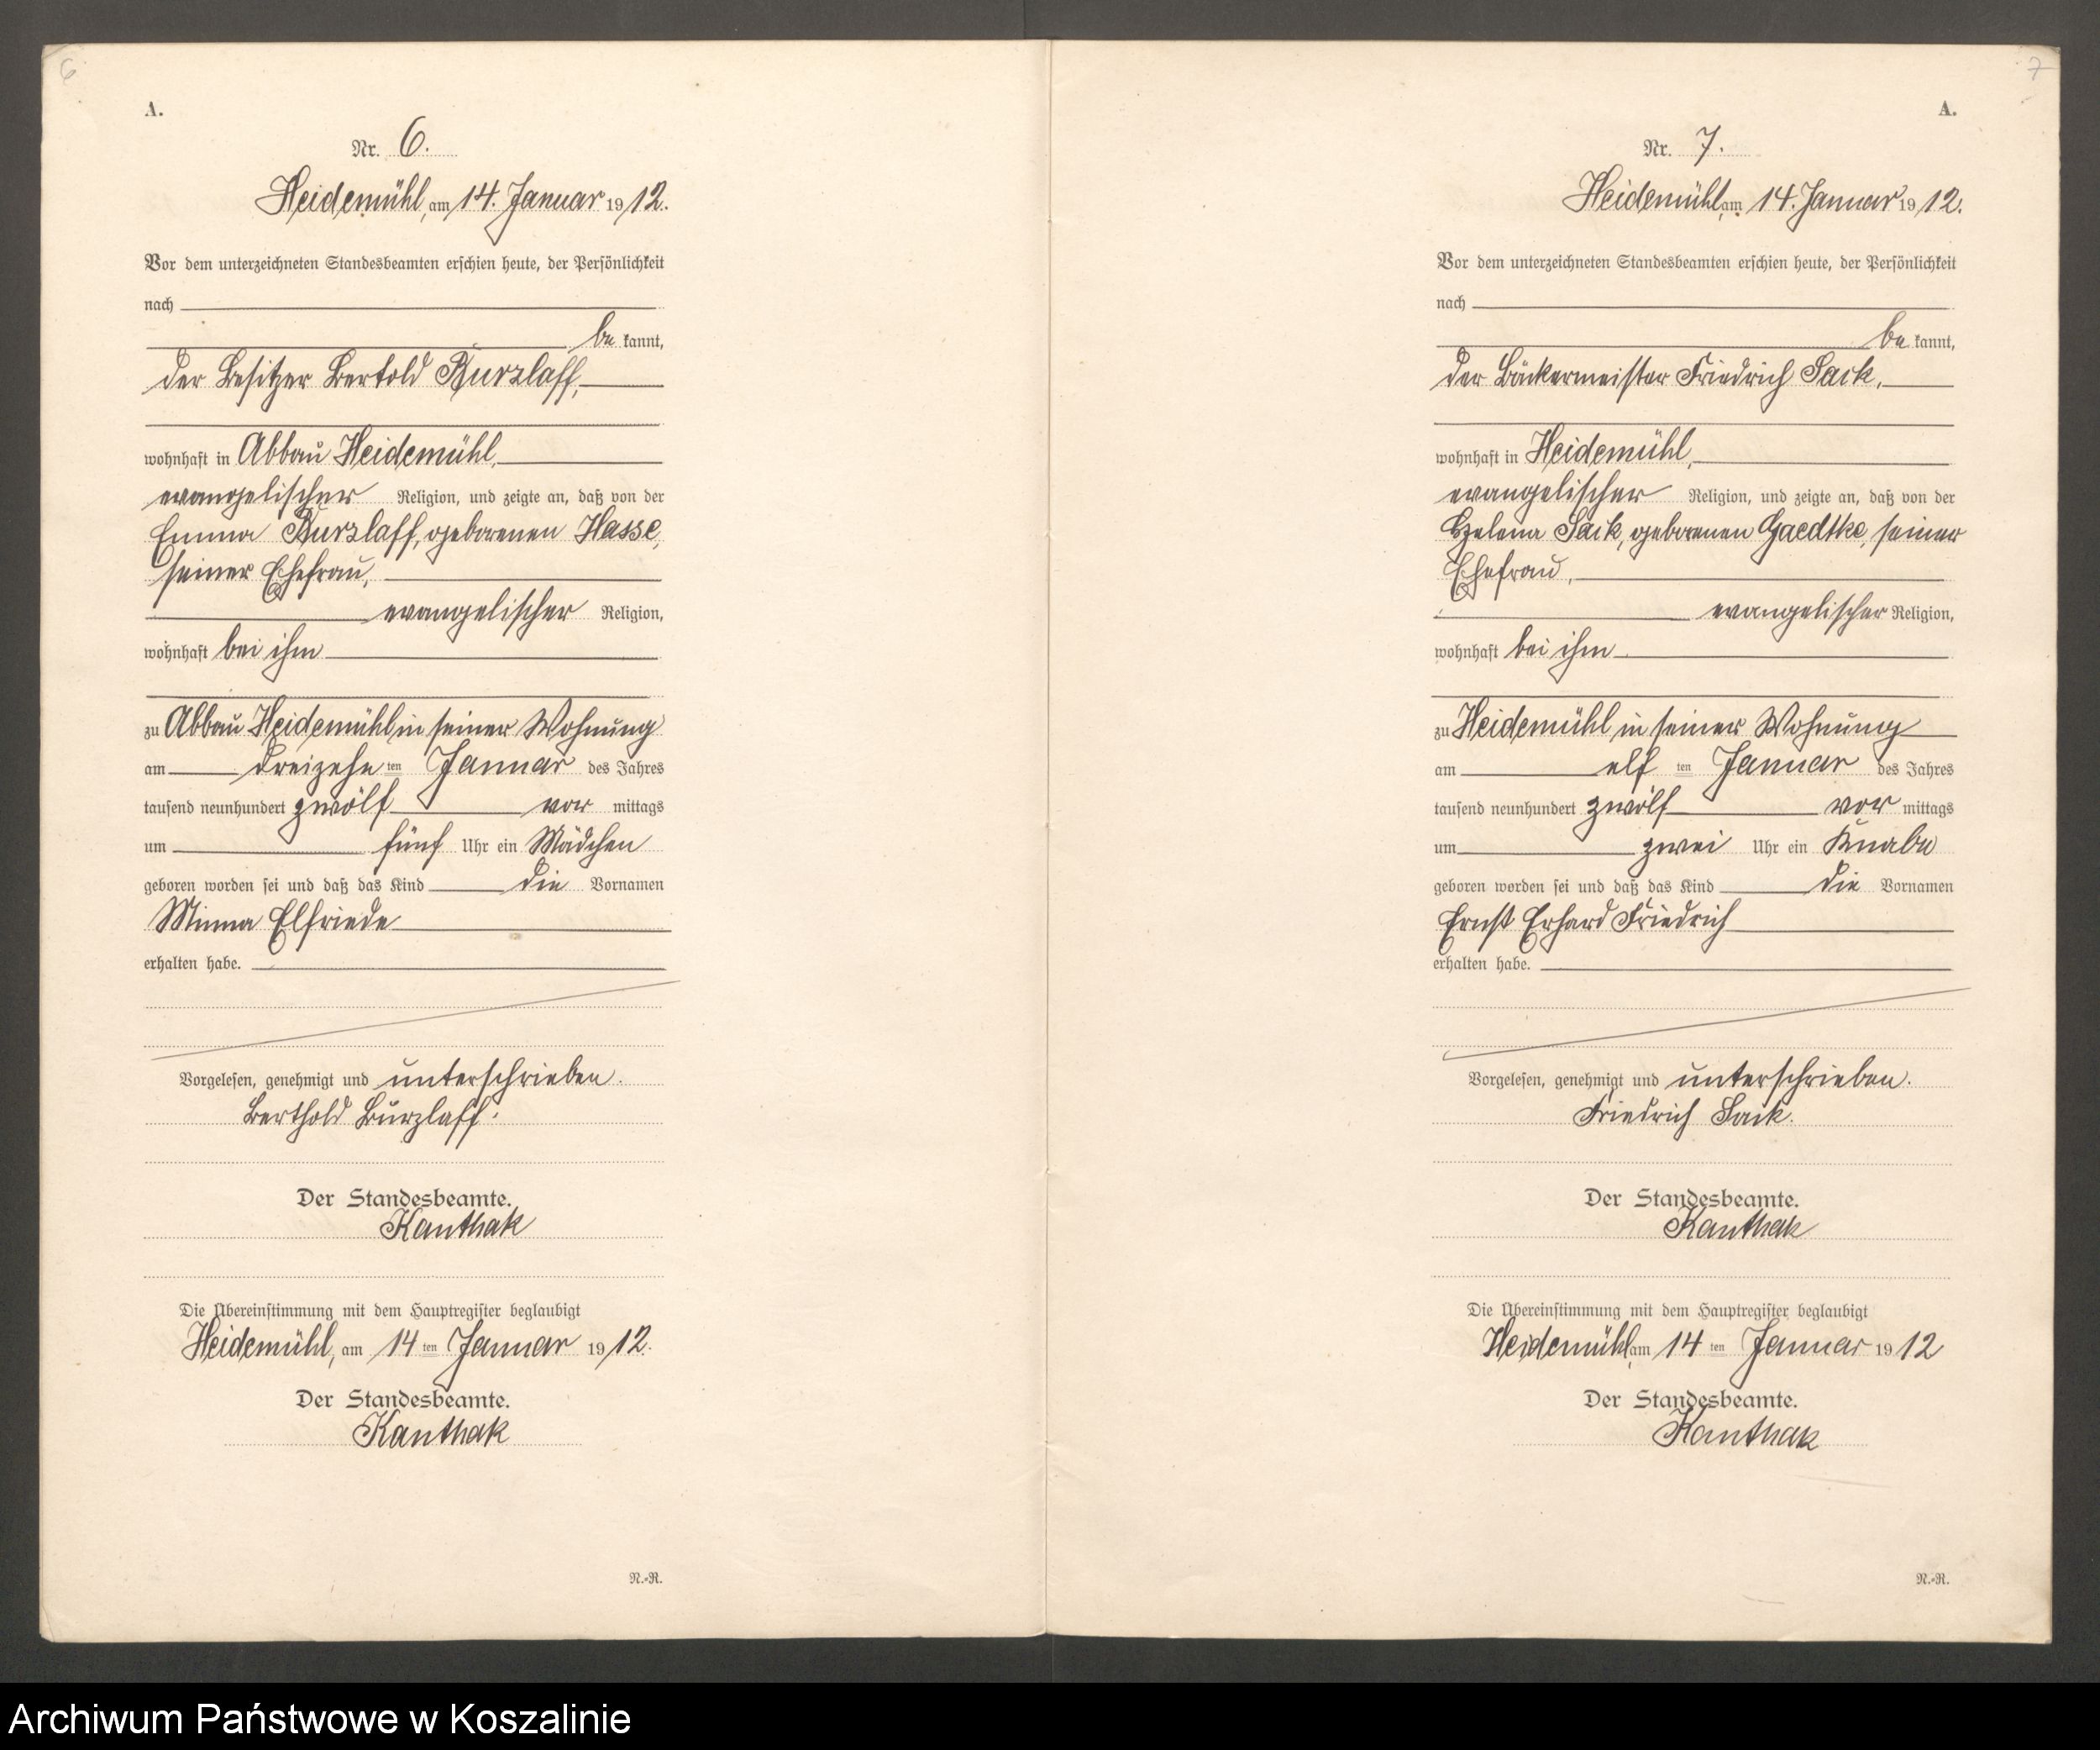 6
A.
Nr. 6.
Heidemühl, am 14. Januar 1912.
Vor dem unterzeichneten Standesbeamten erschien heute, der Persönlichkeit
nach
be kannt,
der Besitzer Bertold Burzlaff,
wohnhaft in Abbau Heidemühl,
evangelischer Religion, und zeigte an, daß von der
Emma Burzlaff, geborenen Hasse,
seiner Ehefrau,
evangelischer Religion,
wohnhaft bei ihm
zu Abbau Heidemühl in seiner Wohnung
am dreizehn ten Januar des Jahres
tausend neunhundert zwölf vor mittags
um fünf Uhr ein Mädchen
geboren worden sei und daß das Kind die Vornamen
Minna Elfriede
erhalten habe.
Vorgelesen, genehmigt und unterschrieben.
Berthold Burzlaff.
Der Standesbeamte.
Kanthak
Die Übereinstimmung mit dem Hauptregister beglaubigt
Heidemühl, am 14 ten Januar 1912.
Der Standesbeamte.
Kanthak
N.-R.
7
A.
Nr. 7.
Heidemühl, am 14. Januar 1912.
Vor dem unterzeichneten Standesbeamten erschien heute, der Persönlichkeit
nach
be kannt,
der Bäckermeister Friedrich Sack,
wohnhaft in Heidemühl,
evangelischer Religion, und zeigte an, daß von der
Helena Sack, geborenen Gaedtke, seiner
Ehefrau,
evangelischer Religion,
wohnhaft bei ihm
zu Heidemühl in seiner Wohnung
am elf ten Januar des Jahres
tausend neunhundert zwölf vor mittags
um zwei Uhr ein Knabe
geboren worden sei und daß das Kind die Vornamen
Ernst Erhard Friedrich
erhalten habe.
Vorgelesen, genehmigt und unterschrieben.
Friedrich Sack.
Der Standesbeamte.
Kanthak
Die Übereinstimmung mit dem Hauptregister beglaubigt
Heidemühl, am 14 ten Januar 1912
Der Standesbeamte.
Kanthak
N.-R.
Archiwum Państwowe w Koszalinie